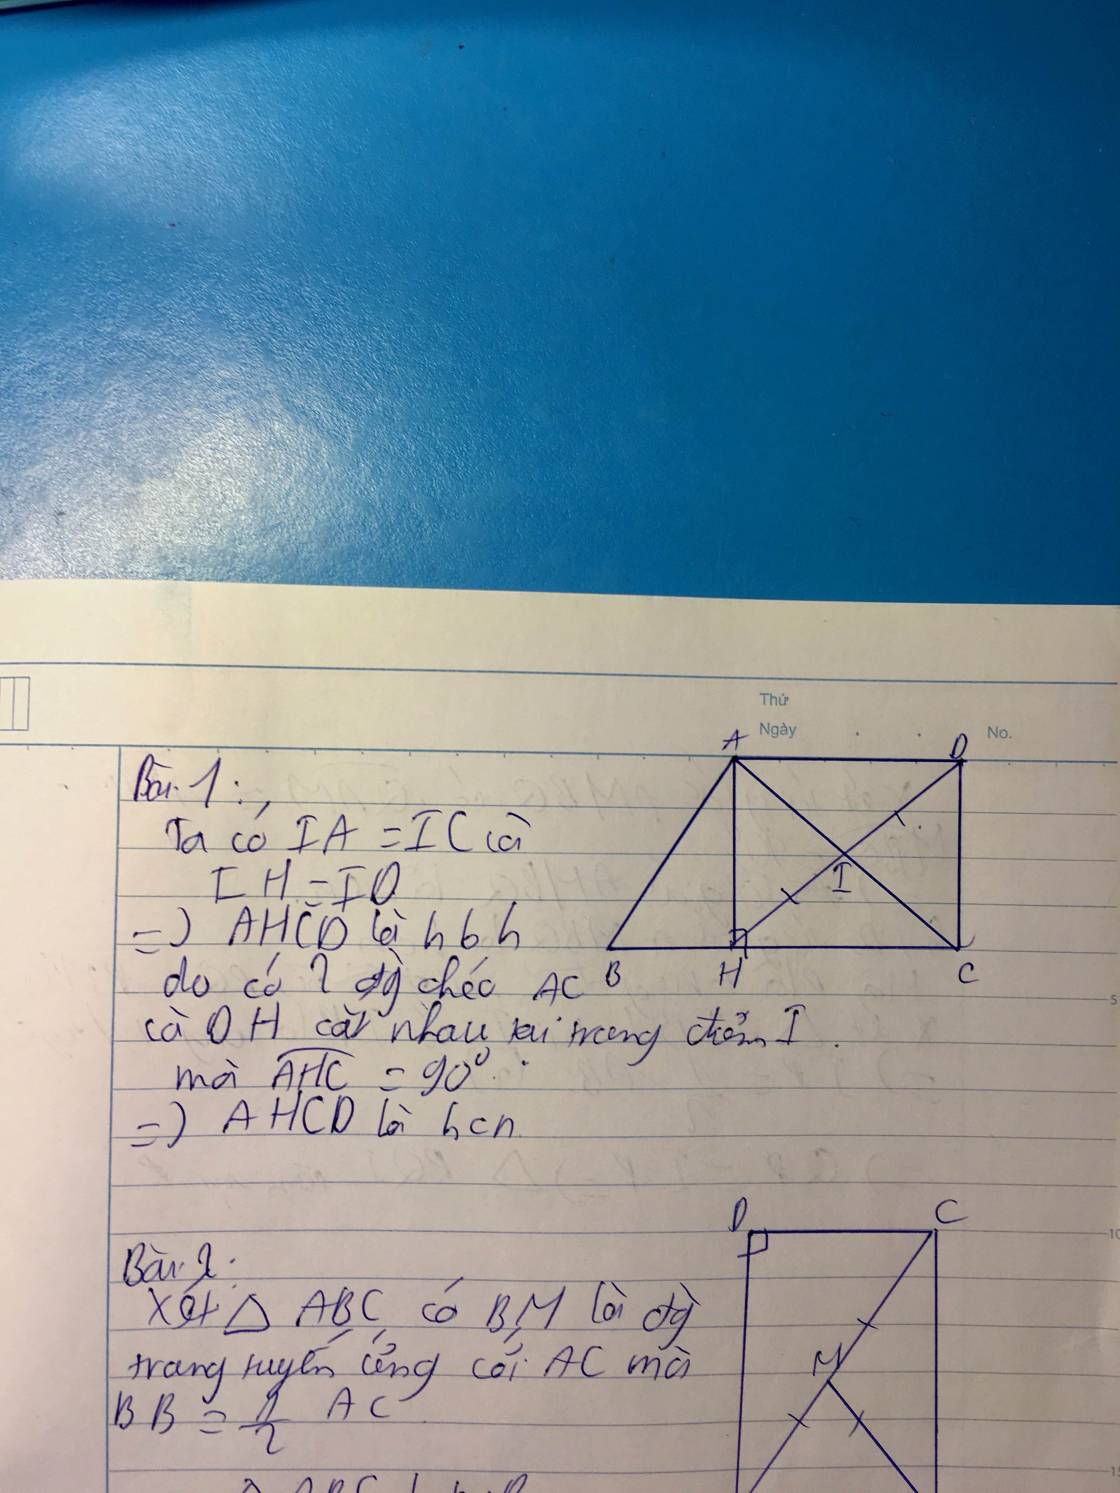 Thứ
Ngày
No.
A
D
Bài 1:
Ta có IA = IC và
IH = ID
I
=) AHCD là hbh
B
H
C
do có 2 đg chéo AC
và DH cắt nhau tại trung điểm I.
5
mà AHC = 90⁰
=) AHCD là hcn
D
C
10
Bài 2:
Xét △ ABC có BM là đg
trung tuyến ứng với AC mà
M
BB = 1/2 AC
15